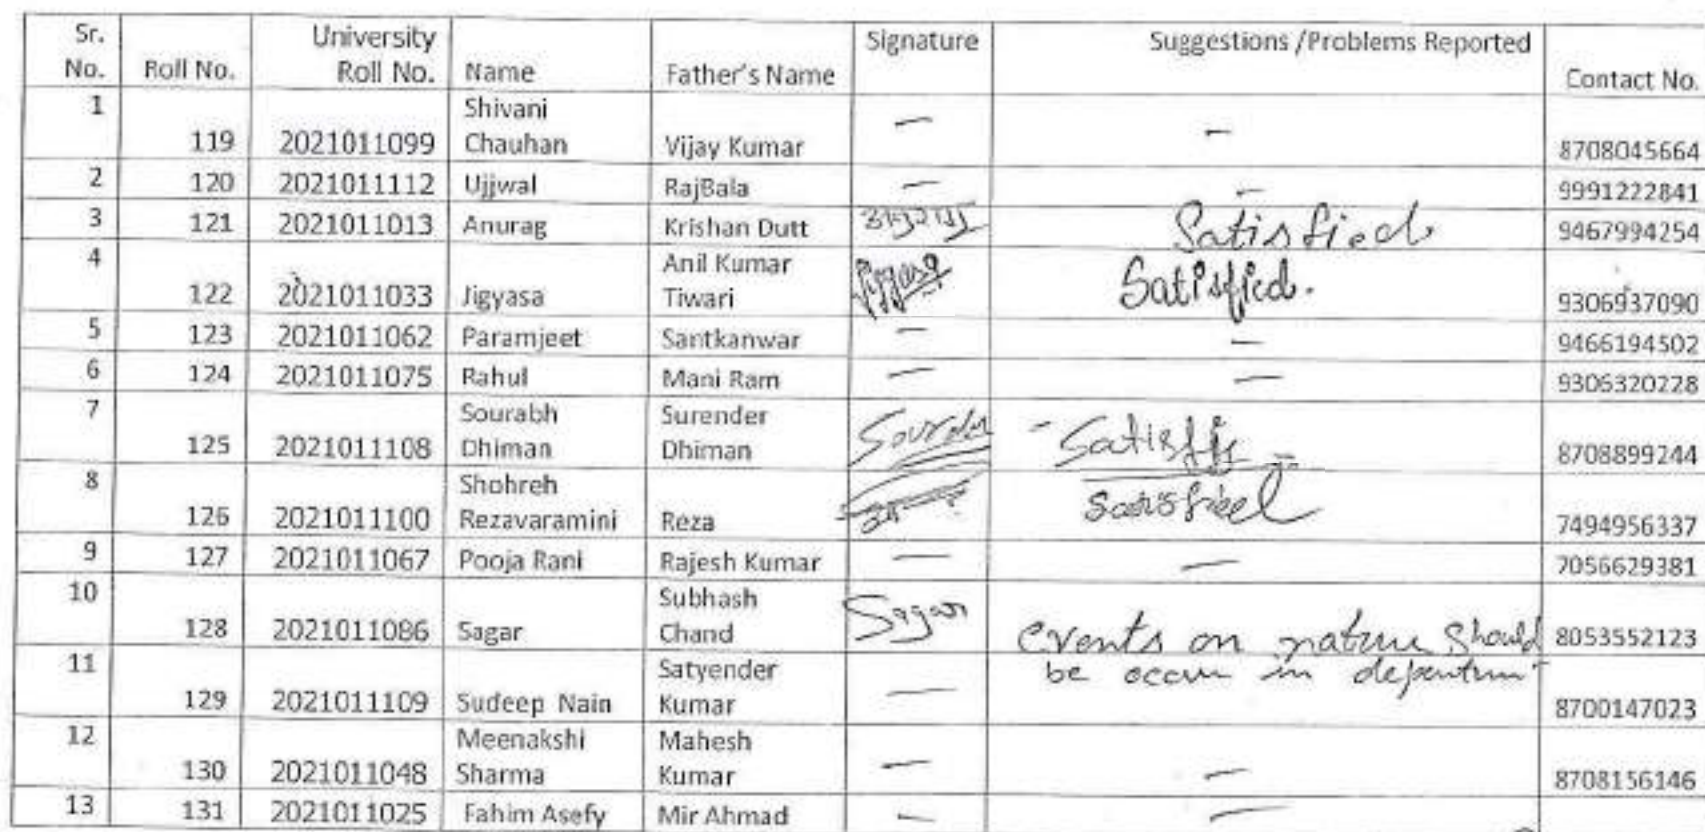 Sr. No. Roll No. University Roll No. Name Father's Name Signature Suggestions /Problems Reported Contact No.
1 119 2021011099 Shivani Chauhan Vijay Kumar — — 8708045664
2 120 2021011112 Ujjwal RajBala — — 9991222841
3 121 2021011013 Anurag Krishan Dutt Satisfied. 9467994254
4 122 2021011033 Jigyasa Anil Kumar Tiwari Jigyasa Satisfied. 9306937090
5 123 2021011062 Paramjeet Santkanwar — — 9466194502
6 124 2021011075 Rahul Mani Ram — — 9306320228
7 125 2021011108 Sourabh Dhiman Surender Dhiman 8708899244
8 126 2021011100 Shohreh Rezavaramini Reza Satisfied 7494956337
9 127 2021011067 Pooja Rani Rajesh Kumar — — 7056629381
10 128 2021011086 Sagar Subhash Chand Sagar events on nature should 8053552123
be occur in department
11 129 2021011109 Sudeep Nain Satyender Kumar — 8700147023
12 130 2021011048 Meenakshi Sharma Mahesh Kumar — — 8708156146
13 131 2021011025 Fahim Asefy Mir Ahmad — —